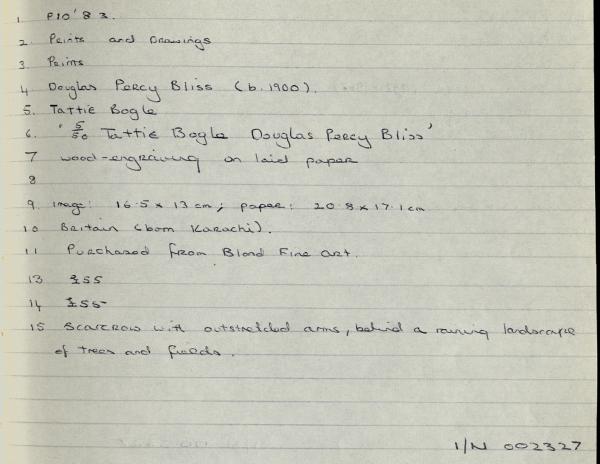 1 P10'83.
2. Prints and Drawings
3. Prints
4 Douglas Percy Bliss (b. 1900).
5. Tattie Bogle
6. '5/50 Tattie Bogle Douglas Percy Bliss'
7 wood-engraving on laid paper
8
9. Image: 16.5 x 13 cm; paper: 20.8 x 17.1 cm
10 Britain (born Karachi).
11 Purchased from Blond Fine Art.
13 £55
14 £55
15 Scarecrow with outstretched arms, behind a raining landscape
of trees and fields.
I/N 002327